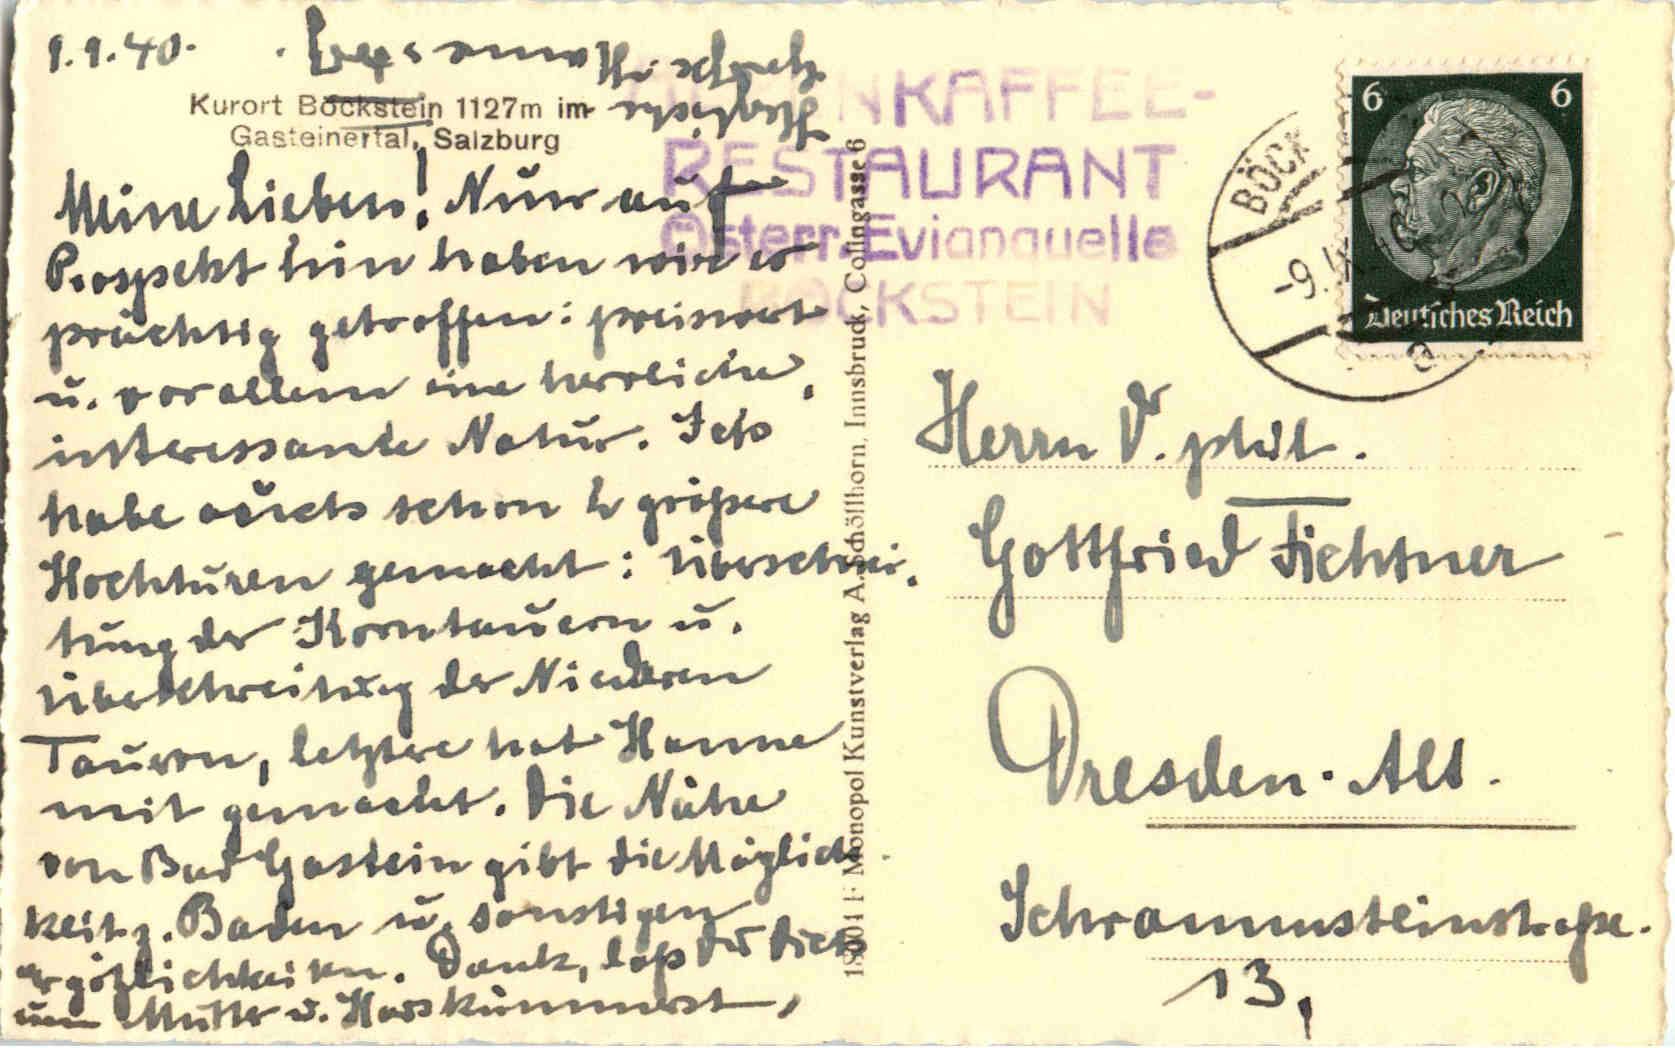 9.9.40.
Kurort Böckstein 1127m im
Gasteinertal, Salzburg
Meine Lieben! Nur auf
Prospekt hin haben wir es
prächtig getroffen: preiswert
u. vor allem eine herrliche,
interessante Natur. Ich
habe auch schon 2 größere
Hochturen gemacht: Überschrei-
tung der Korntauern u.
Überschreitung der Niederen
Tauern, letztere hat Hanne
mit gemacht. Die Nähe
von Bad Gastein gibt die Möglich-
keit z. Baden u. sonstigen
Ergötzlichkeiten. Dank, laß Du Dich
um Mutter u. Haus kümmerst,
KAFFEE-
RESTAURANT
Österr. Evianquelle
BÖCKSTEIN
Monopol Kunstverlag A. Schöllhorn, Innsbruck, Collingasse 6
BÖCK
-9.IX
6 6
Deutsches Reich
Herrn D. phil.
Gottfried Fichtner
Dresden-Alt.
Schrammsteinstraße.
13,